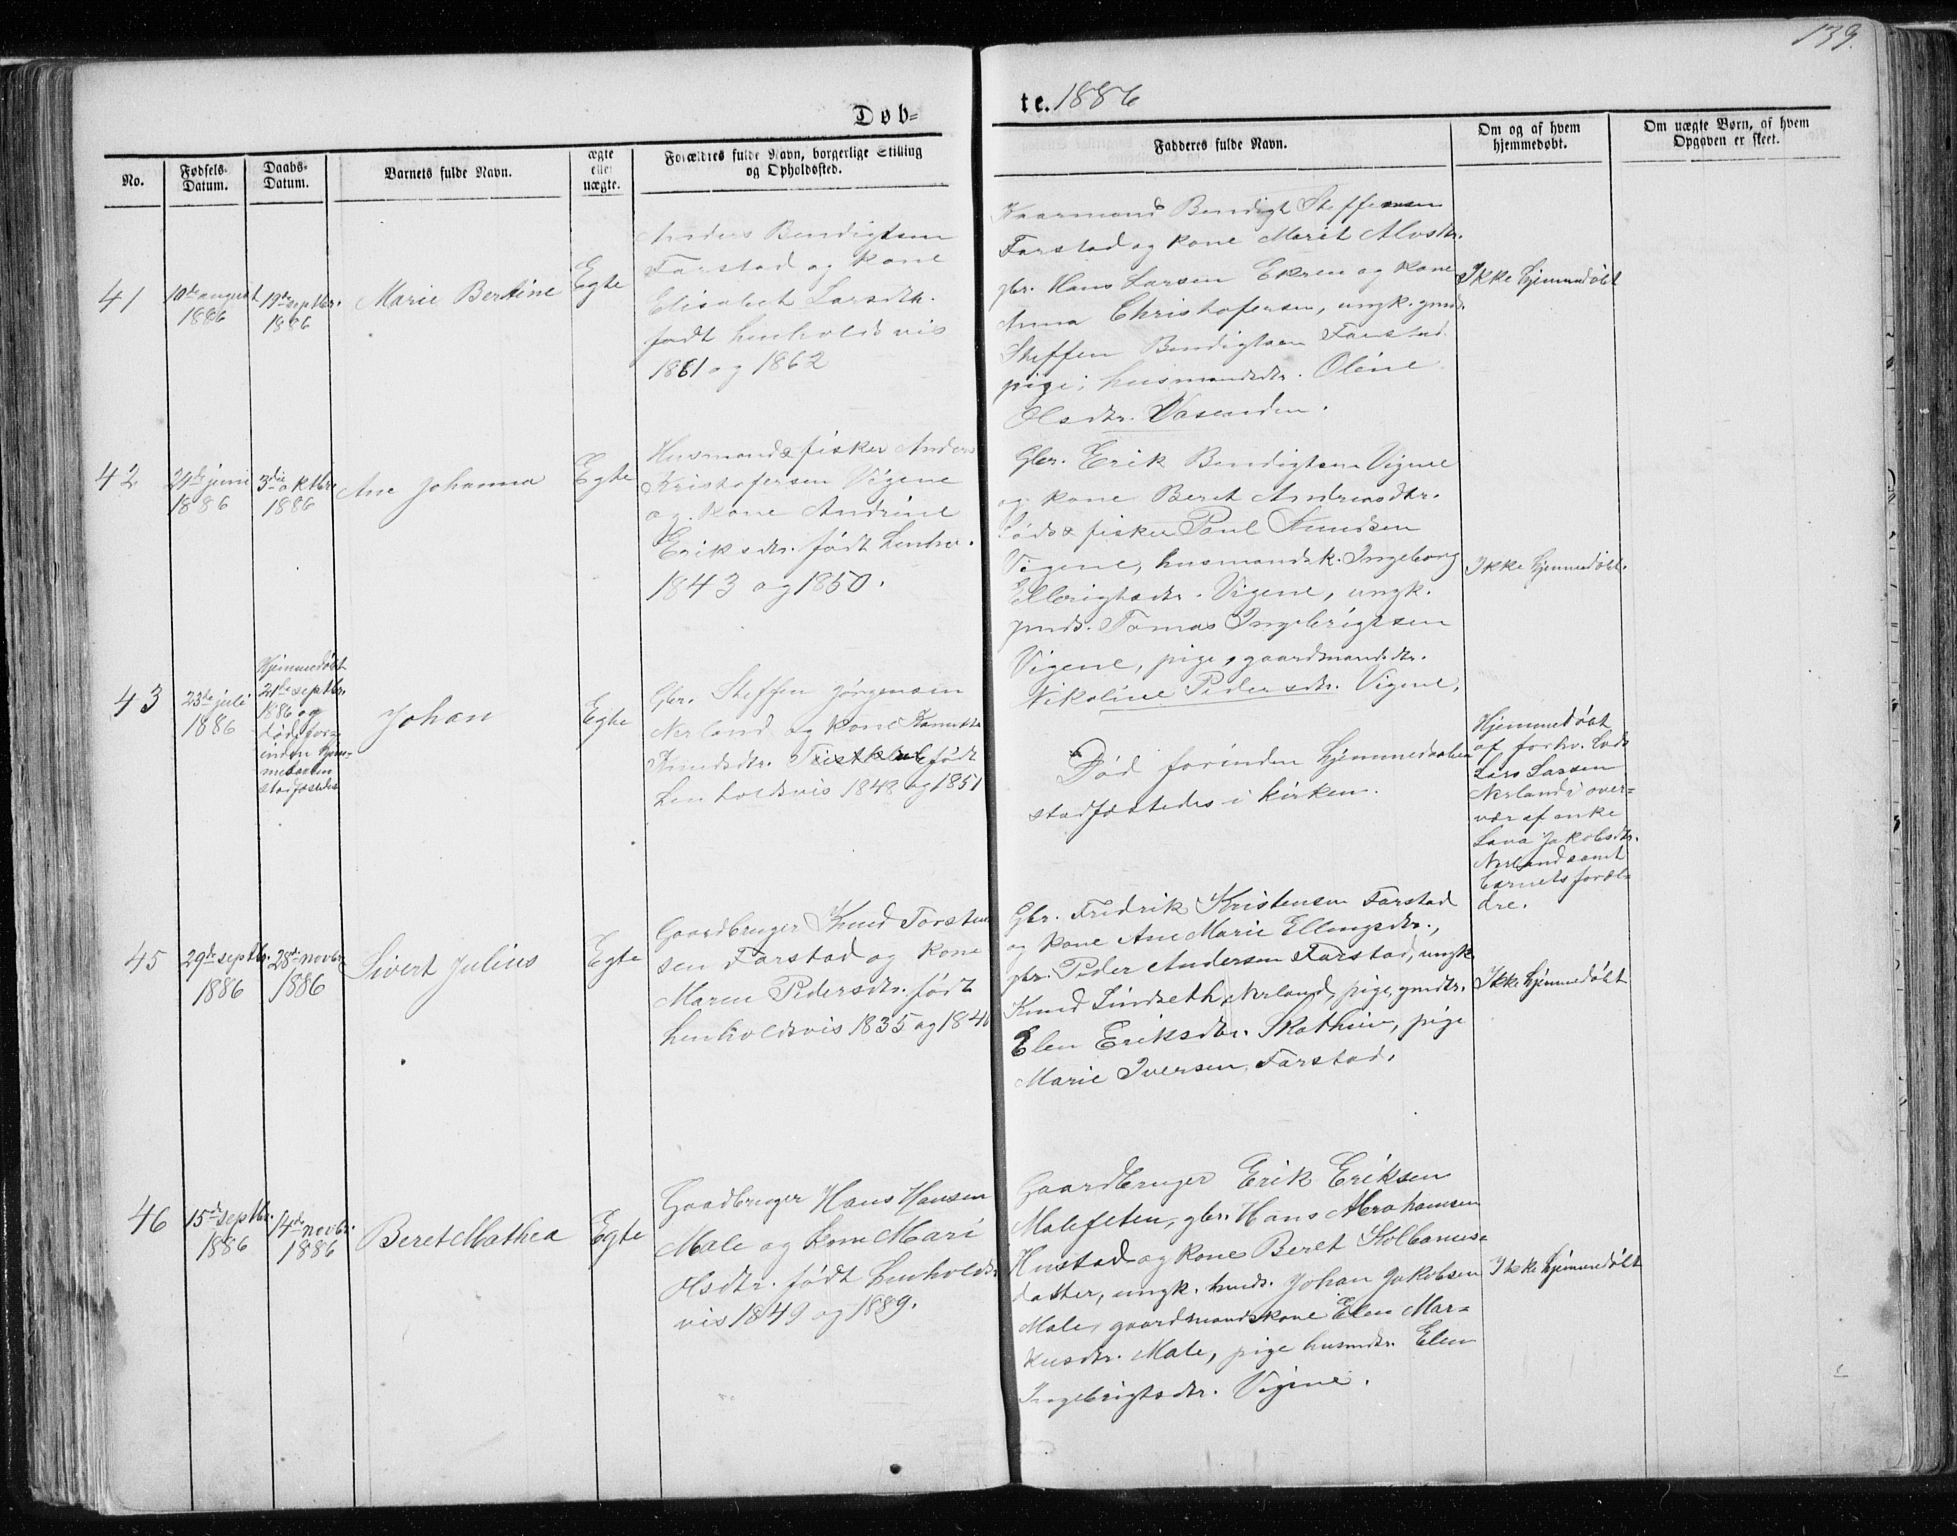 139.
Døb=
te. 1886
No.
Fødsels-
Datum.
Daabs-
Datum.
Barnets fulde Navn.
ægte
eller
uægte.
Forældres fulde Navn, borgerlige Stilling
og Opholdssted.
Fadderes fulde Navn.
Om og af hvem
hjemmedøbt.
Om uægte Børn, af hvem
Opgaven er skeet.
41
10de august
1886
19de septbr.
1886
Marie Bertine
Egte
Anders Bendigtsen
Farstad og kone
Elisabet Larsdtr.
født henholdsvis
1861 og 1862
Kaarmand Bendigt Steffensen
Farstad og kone Marit Alvsdtr.
gbr. Hans Larsen Ekren og kone
Anna Christofersen, ungk. gmds.
Steffen Bendigtsen Farstad
pige, husmandsdtr. Oline
Olsdtr. Vasenden.
Ikke hjemmedøbt
42
24de juni
1886
3die oktbr.
1886
Ane Johanna
Egte
Husmand & fisker Anders
Kristofersen Vigene
og kone Andrine
Eriksdtr. født henhv.
1843 og 1850.
Gbr. Erik Bendigtsen Vigene
og kone Beret Andreasdtr.
fisker Paul Knudsen
Vigene, husmandsk. Ingeborg
Ellerigtsdtr. Vigene, ungk.
gmds. Tomas Ingebrigtsen
Vigene, pige, gaardmandsdtr.
Nikoline Pedersdtr. Vigene.
Ikke hjemmedøbt.
43
23de juli
1886
Hjemmedøbt
21de septbr.
1886 og
død for-
inden hjem-
medaaben
stadfæstedes
Johan
Egte
Gbr. Steffen Jørgensen
Nerland og kone
Knudsdtr. født
henholdsvis 1848 og 1851
Død forinden hjemmedaaben
stadfæstedes i kirken.
Hjemmedøbt
af forhv.
Lars Larsen
Nerland i over=
vær af enke
Lava Jakobsdtr.
Nerland samt
barnets foræl-
dre.
45
29de septbr.
1886
28de novbr.
1886
Sivert Julius
Egte
Gaardbruger Knud Torsten
sen Farstad og kone
Maren Pedersdtr. født
henholdsvis 1835 og 1840
Gbr. Fredrik Kristensen Farstad
og kone Ane Marie Ellingsdtr.,
gbr. Peder Andersen Farstad, ungk
Knud Lindseth, Nerland, pige, gmdtr.
Elen Eriksdtr. Skothein, pige
Marie Iversen Farstad.
Ikke hjemmedøbt
46
15de septbr.
1886
14de novbr.
1886
Beret Mathea
Egte
Gaardbruger Hans Hansen
Male og kone Mari
Olsdtr. født henholds
vis 1849 og 1889.
Gaardbruger Erik Eriksen
Malefeten, gbr. Hans Abrahamsen
Hustad og kone Beret
datter, ungk. hmds. Johan Jakobsen
Male, gaardmandskone Elen Mar=
kusdtr. Male, pige husmdtr. Elen
Ingebrigtsdtr. Vigene.
Ikke hjemmedøbt